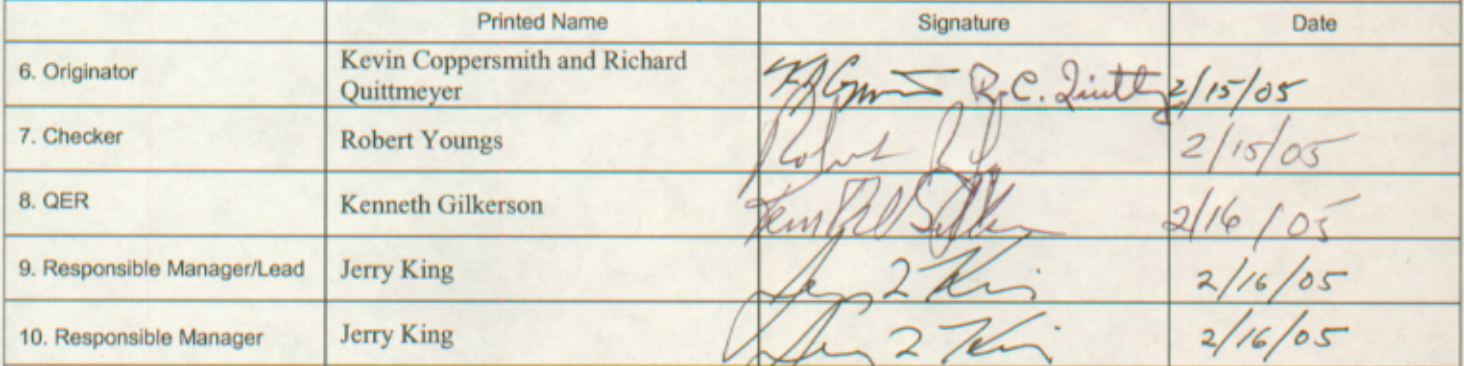 Printed Name Signature Date
6. Originator Kevin Coppersmith and Richard
Quittmeyer R.C. 2/15/05
7. Checker Robert Youngs Robert 2/15/05
8. QER Kenneth Gilkerson 2/16/05
9. Responsible Manager/Lead Jerry King Jerry L King 2/16/05
10. Responsible Manager Jerry King Jerry L King 2/16/05